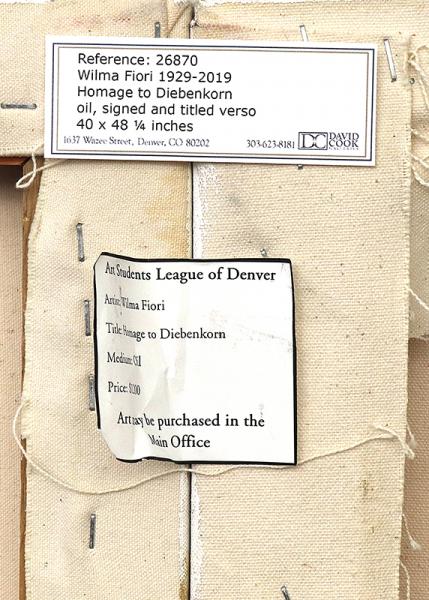 Reference: 26870
Wilma Fiori 1929-2019
Homage to Diebenkorn
oil, signed and titled verso
40 x 48 ¼ inches
1637 Wazee Street, Denver, CO 80202 303-623-8181 DC DAVID COOK
Art Students League of Denver
Artist: Wilma Fiori
Title: Homage to Diebenkorn
Medium: Oil
Price:
Art may be purchased in the
Main Office